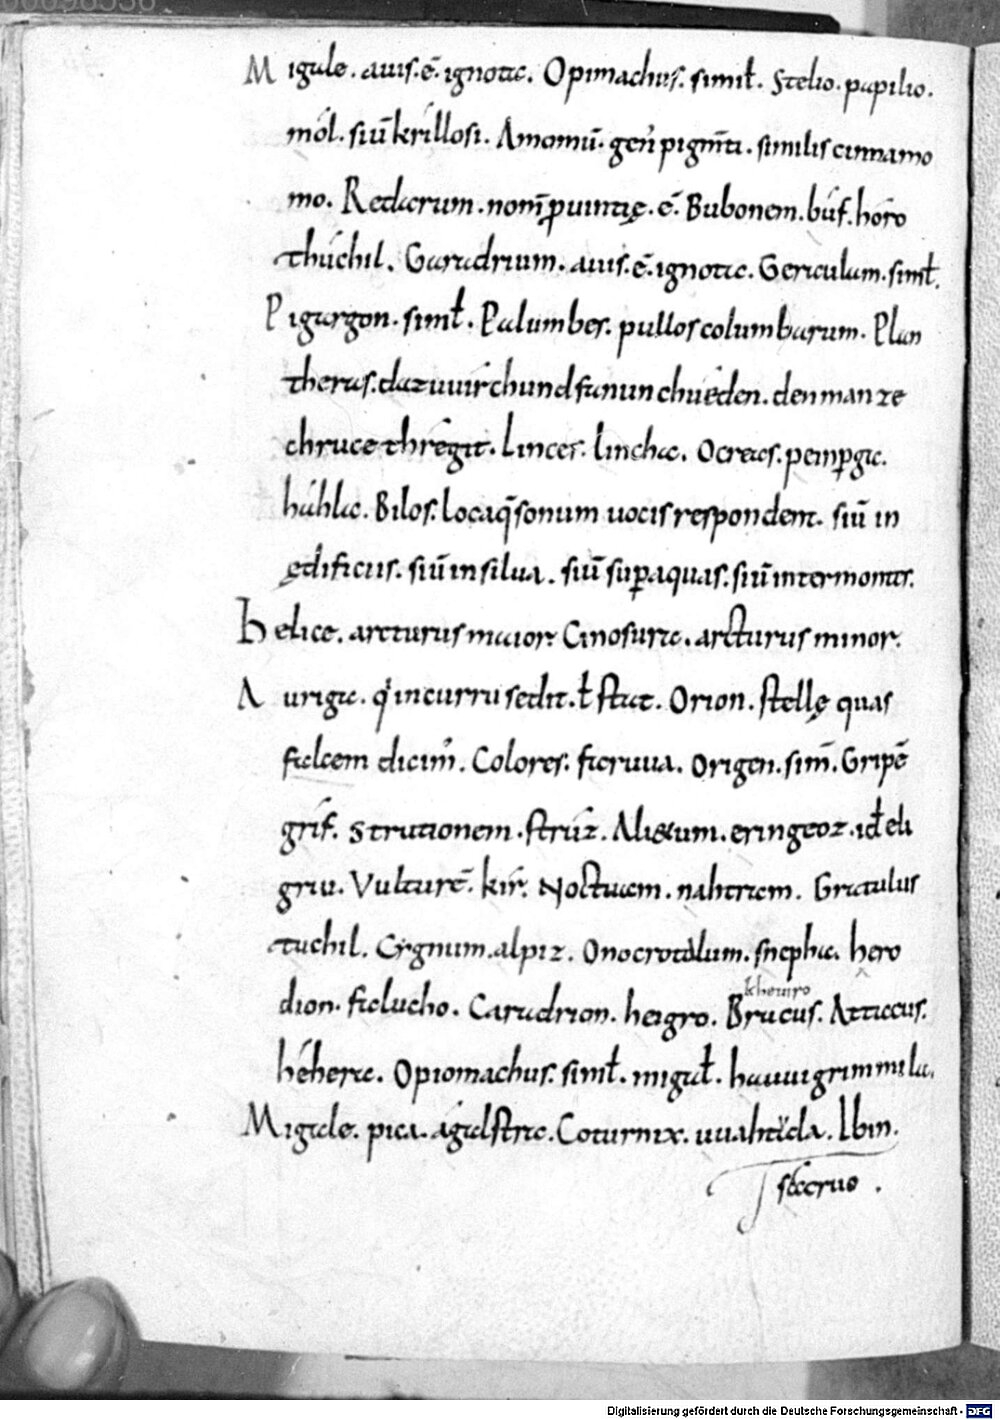 Migale. auis. ē. ignota. Opimachus. simił. Stelio. papilio.
mól. siū krillosi. Amomū. geń pigm̄ti. similis cinnamo
mo. Redarum. nom̄ ꝓuintię. ē. Bubonem. búf. horo
thúchil. Garadrium. auis. ē. ignota. Gericulam. simił.
Pigargon. simił. Palumbes. pullos columbarum. Plan
theras. daz uuir chundfanun chuéden. den man ze
chruce thrégit. Linces. lincha. Ocreas. pemꝑga.
húhla. Bilos. loca q̄ sonum uocis respondent. siū in
ędificiis. siū in silua. siū suꝑ aquas. siū inter montes.
Helice. arcturus maior. Cinosura. arcturus minor.
Auriga. q' in curru sedit. ł stat. Orion. stellę quas
falcem dicim'. Colores. farauua. Origen. sim̄. Gripē
gríf. Strutionem. strúz. Aliętum. eringeoz. id eli
griu. Vulturē. kír. Noctuam. nahtram. Graculus
tachil. Cygnum. alpiz. Onocrotalum. snepha. hero
dion. falucho. Caradrion. heigro. Brucus. Atticcus.
kheuiro
héhera. Opiomachus. simił. miguł. hauuigrimmila.
Migale. pica. ágalstra. Coturnix. uuahtila. Ibin.